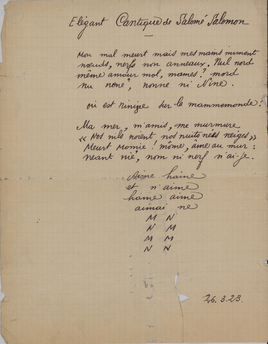 Elégant Cantique de Salomé Salomon
Mon mal meurt mais mes mains miment
nœuds, nerfs non anneaux. Nul nord
même amour mol, mames, mord
nus nénés, nonne ni Nine.
où est Ninive sur la mammemonde?
Ma mer, m'amis, me murmure
« nos nils noient nos nuits nées neiges »
Meurt momie! môme, âme au mur:
néant nié, nom ni nerf n'ai-je.
haine
et n'aime
haine aime
aimai ne
M N
N M
M N
N M
26.3.23.